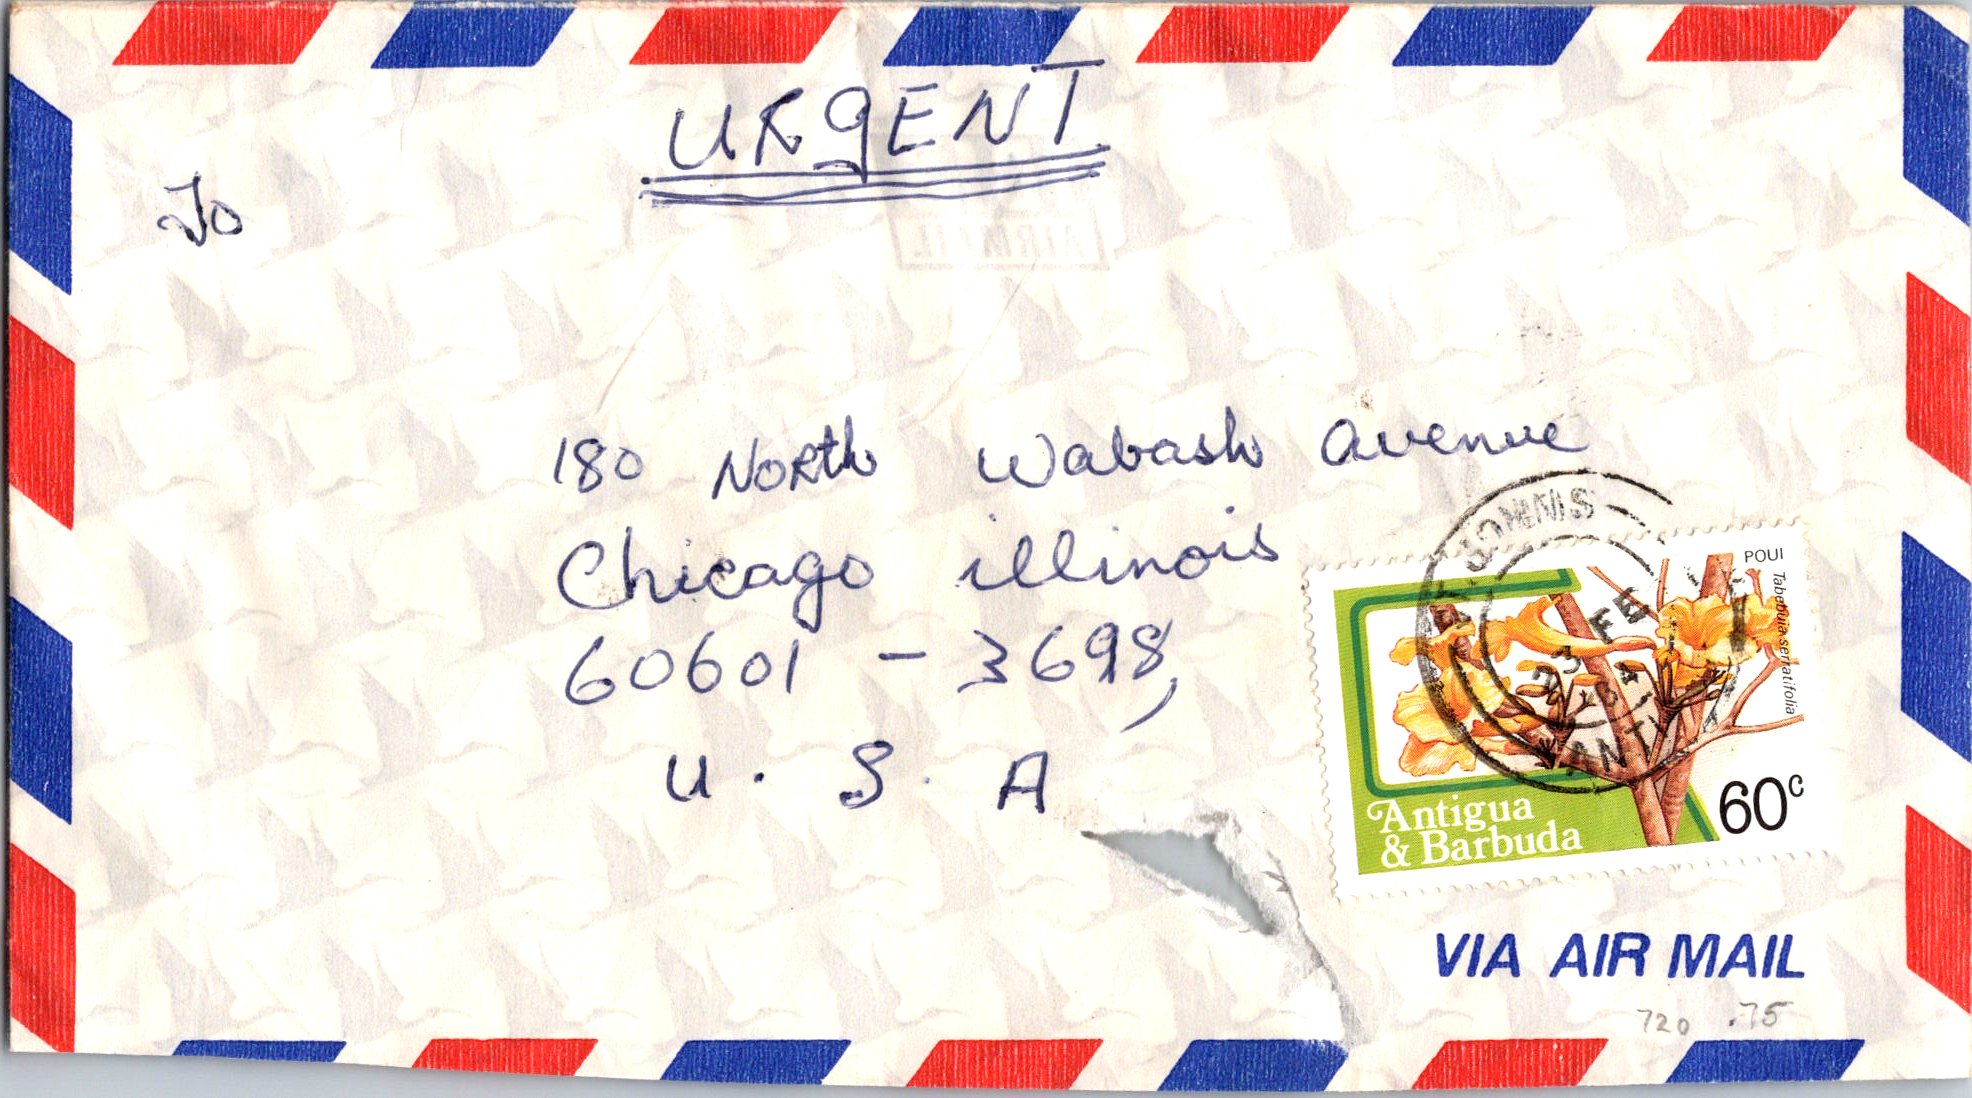 URgENT
To
AIRMAIL
180 NORth Wabash avenue
Chicago illinois
60601 - 3698,
U. S. A
ST JOHNS
23 FE
84
ANT
POUI
Tabebuia serratifolia
60c
Antigua
& Barbuda
VIA AIR MAIL
720 .75